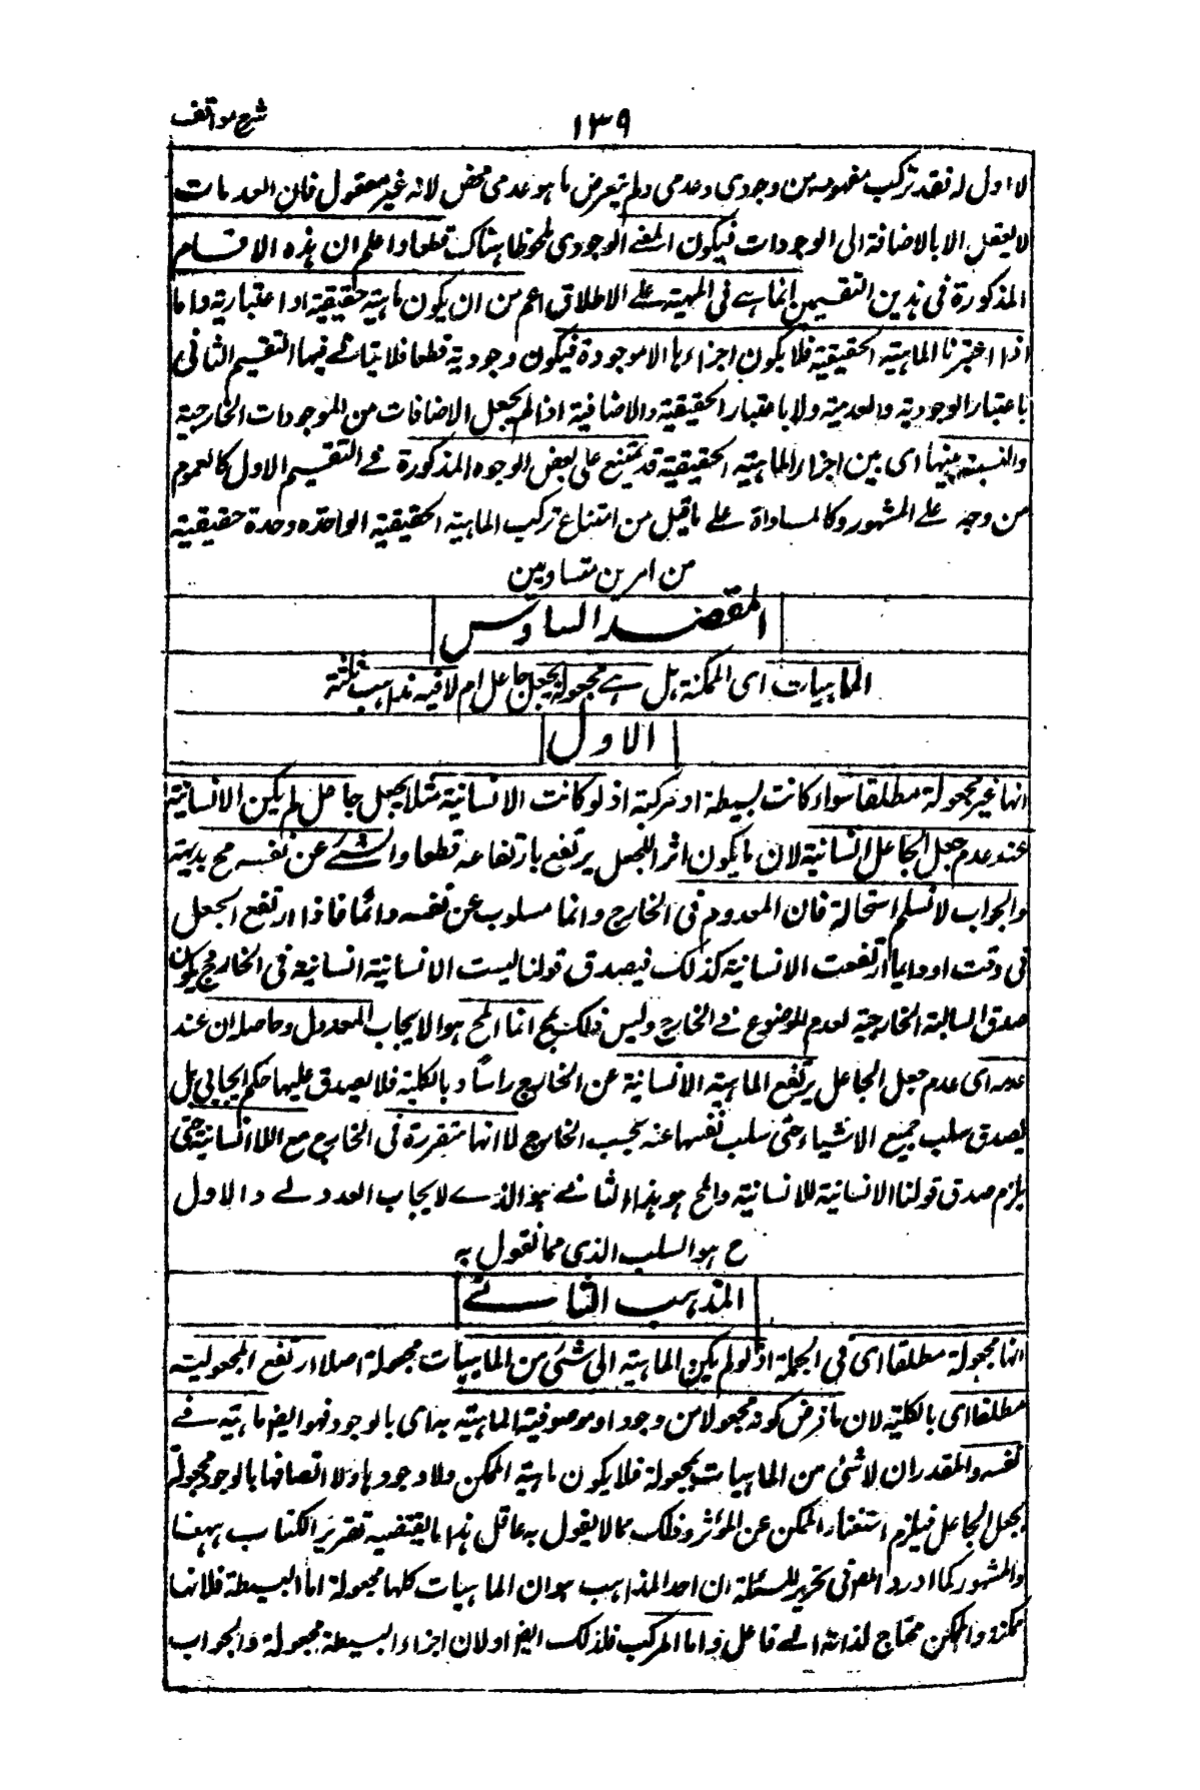 شرح مواقف
١٣٩
لا اول له نقد تركب مفهومه من وجودى وعدمى ولم يتعرض ما هو عدمى محض لانه غير معقول فان العدمات
لا يعقل الا بالاضافة الى الوجودات فيكون المعنے الوجودى ملحوظا هناك قطعا واعلم ان هذه الاقسام
المذكورة فى هذين التقسيمين انما هے فى المهية علے الاطلاق اعم من ان يكون ماهية حقيقية او اعتبارية واما
اذا اعتبرنا الماهية الحقيقية فلا يكون اجزاءها الا موجودة فيكون وجودية قطعا فلا يتاتے فيها التقسيم الثانى
باعتبار الوجودية والعدمية ولا باعتبار الحقيقية والاضافية اذا لم يجعل الاضافات من الموجودات الخارجية
والنسبة بينها اى بين اجزاء الماهية الحقيقية قد تمتنع على بعض الوجوه المذكورة فے التقسيم الاول كالعموم
من وجه علے المشهور وكالمساواة علے ما قيل من امتناع تركب الماهية الحقيقية الواحدة وحدة حقيقية
من امرين متساويين
المقصد السادس
الماهيات اى الممكنة هل هے مجعولة بجعل جاعل ام لا فيه مذاهب ثلثة
الاول
انها غير مجعولة مطلقا سواء كانت بسيطة او مركبة اذ لو كانت الانسانية مثلا بجعل جاعل لم يكن الانسانية
عند عدم جعل الجاعل انسانية لان ما يكون اثرا للجعل يرتفع بارتفاعه قطعا والشے عن نفسه مح بديهة
والجواب لا نسلم استحالة فان المعدوم فى الخارج دائما مسلوب عن نفسه دائما فاذا ارتفع الجعل
فى وقت او دايما ارتفعت الانسانية كذلك فيصدق قولنا ليست الانسانية انسانية فى الخارج مح يكون
صدق السالبة الخارجية لعدم الموضوع فے الخارج وليس ذلك بمح انما المح هو الايجاب المعدول وحاصله ان عند
عدمه اى عدم جعل الجاعل يرتفع الماهية الانسانية عن الخارج راسًا وبالكلية فلا يصدق عليها حكم ايجابى بل
يصدق سلب جميع الاشياء حتى سلب نفسها عنه بحسب الخارج لا انها متقررة فى الخارج مع اللاانسانية حتى
يلزم صدق قولنا الانسانية لا انسانية والمح هو هذا الثانے هو الذے لايجاب العدولے والاول
ح هو السلب الذى مما نقول به
المذهب الثانے
انها مجعولة مطلقا اى فى الجملة اذ لو لم يكن الماهية الى شئ من الماهيات مجعولة اصلا ارتفع المجعولية
مطلقا اى بالكلية لان ما فرض كونه مجعولا من وجود او موصوفية الماهية به اى بالوجود فهو ايضا ماهية فے
نفسه والمقدر ان لا شئ من الماهيات بمجعولة فلا يكون ماهية الممكن ولا وجودها ولا اتصافها بالوجود مجعولة
بجعل الجاعل فيلزم استغناء الممكن عن المؤثر وذلك مما لا يقول به عاقل هذا ما يقتضيه تقرير الكتاب ههنا
والمشهور كما اورد المص فى تحرير المسئلة ان احد المذاهب هو ان الماهيات كلها مجعولة اما البسيطة فلانها
ممكنة والممكن محتاج لذاته الے فاعل واما المركب فلذلك ايضا ولان اجزاءه البسيطة مجعولة والجواب